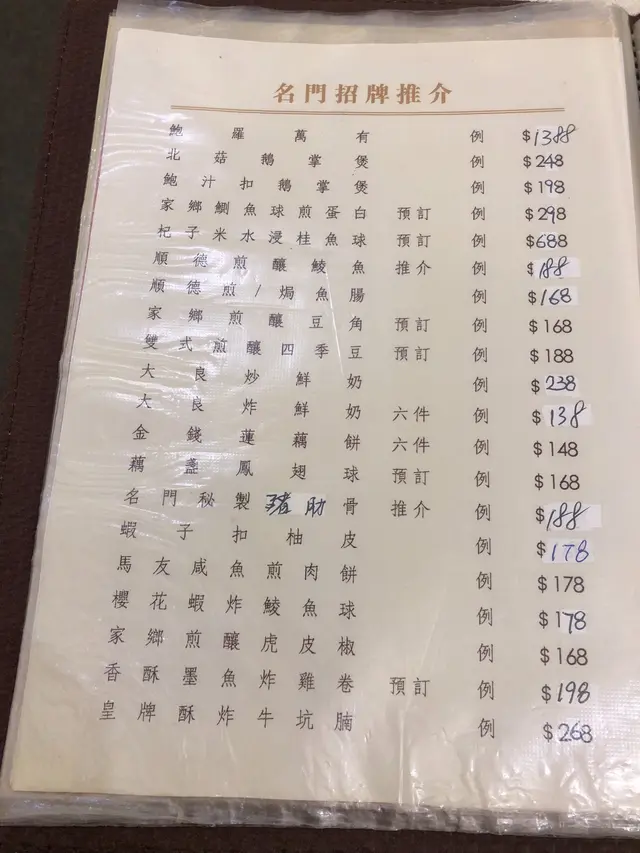 名門招牌推介
鮑羅萬有 例 $1388
北菇鵝掌煲 例 $248
鮑汁扣鵝掌煲 例 $198
家鄉鯽魚球煎蛋白 預訂 例 $298
杞子米水浸桂魚球 預訂 例 $688
順德煎釀鯪魚 推介 例 $188
順德煎/焗魚腸 例 $168
家鄉煎釀豆角 預訂 例 $168
雙式煎釀四季豆 預訂 例 $188
大良炒鮮奶 例 $238
大良炸鮮奶 六件 例 $138
金錢蓮藕餅 六件 例 $148
藕盞鳳翅球 預訂 例 $168
名門秘製豬肋骨 推介 例 $188
蝦子扣柚皮 例 $178
馬友咸魚煎肉餅 例 $178
櫻花蝦炸鯪魚球 例 $178
家鄉煎釀虎皮椒 例 $168
香酥墨魚炸雞卷 預訂 例 $198
皇牌酥炸牛坑腩 例 $268